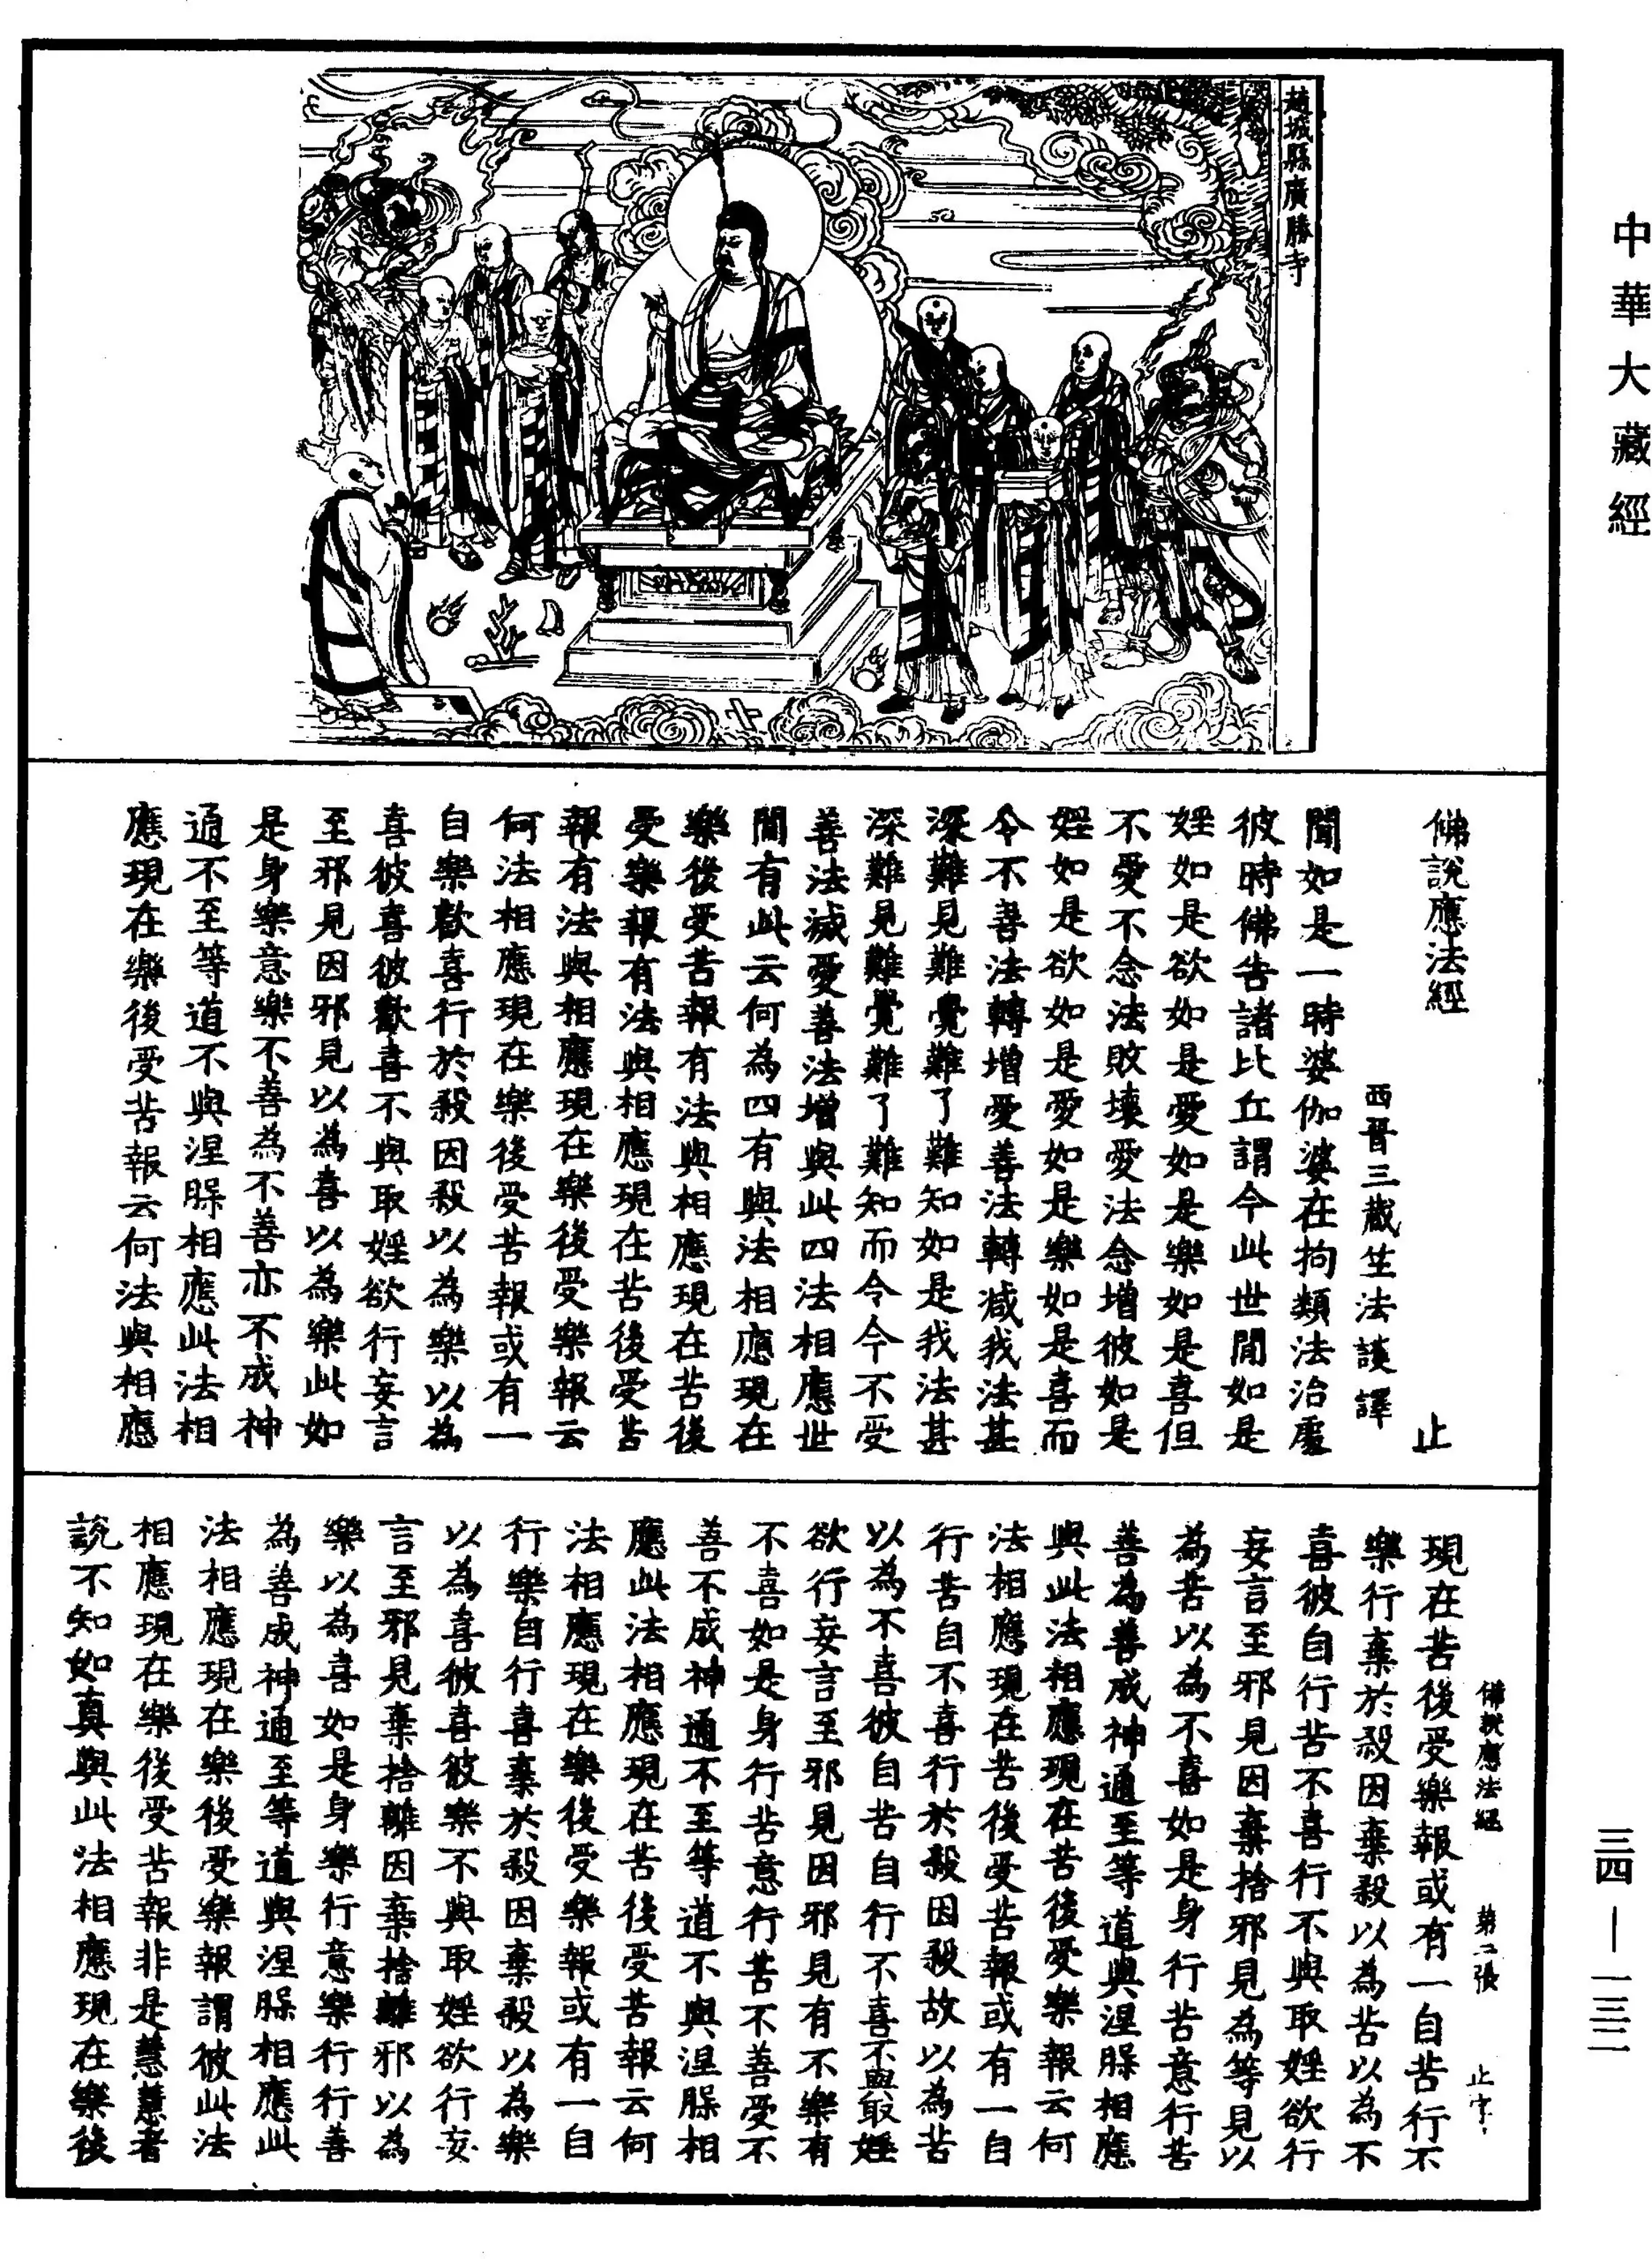 中華大藏經
趙城縣廣勝寺
佛說應法經
止
西晉三藏竺法護譯
聞如是一時婆伽婆在拘類法治處
彼時佛告諸比丘謂今此世間如是
婬如是欲如是愛如是樂如是喜但
不愛不念法敗壞愛法念增彼如是
婬如是欲如是愛如是樂如是喜而
令不善法轉增愛善法轉減我法甚
深難見難覺難了難知如是我法甚
深難見難覺難了難知而令今不受
善法減愛善法增與此四法相應世
間有此云何為四有與法相應現在
樂後受苦報有法與相應現在苦後
受樂報有法與相應現在苦後受苦
報有法與相應現在樂後受樂報云
何法相應現在樂後受苦報或有一
自樂歡喜行於殺因殺以為樂以為
喜彼喜彼歡喜不與取婬欲行妄言
至邪見因邪見以為喜以為樂此如
是身樂意樂不善為不善亦不成神
通不至等道不與涅槃相應此法相
應現在樂後受苦報云何法與相應
佛說應法經　第二張　止字
現在苦後受樂報或有一自苦行不
樂行棄於殺因棄殺以為苦以為不
喜彼自行苦不喜行不與取婬欲行
妄言至邪見因棄捨邪見為等見以
為苦以為不喜如是身行苦意行苦
善為善成神通至等道與涅槃相應
與此法相應現在苦後受樂報云何
法相應現在苦後受苦報或有一自
行苦自不喜行於殺因殺故以為苦
以為不喜彼自苦自行不喜不與取婬
欲行妄言至邪見因邪見有不樂有
不喜如是身行苦意行苦不善受不
善不成神通不至等道不與涅槃相
應此法相應現在苦後受苦報云何
法相應現在樂後受樂報或有一自
行樂自行喜棄於殺因棄殺以為樂
以為喜彼喜彼樂不與取婬欲行妄
言至邪見棄捨離因棄捨離邪以為
樂以為喜如是身樂行意樂行行善
為善成神通至等道與涅槃相應此
法相應現在樂後受樂報謂彼此法
相應現在樂後受苦報非是慧慧者
說不知如真與此法相應現在樂後
三四—一三二